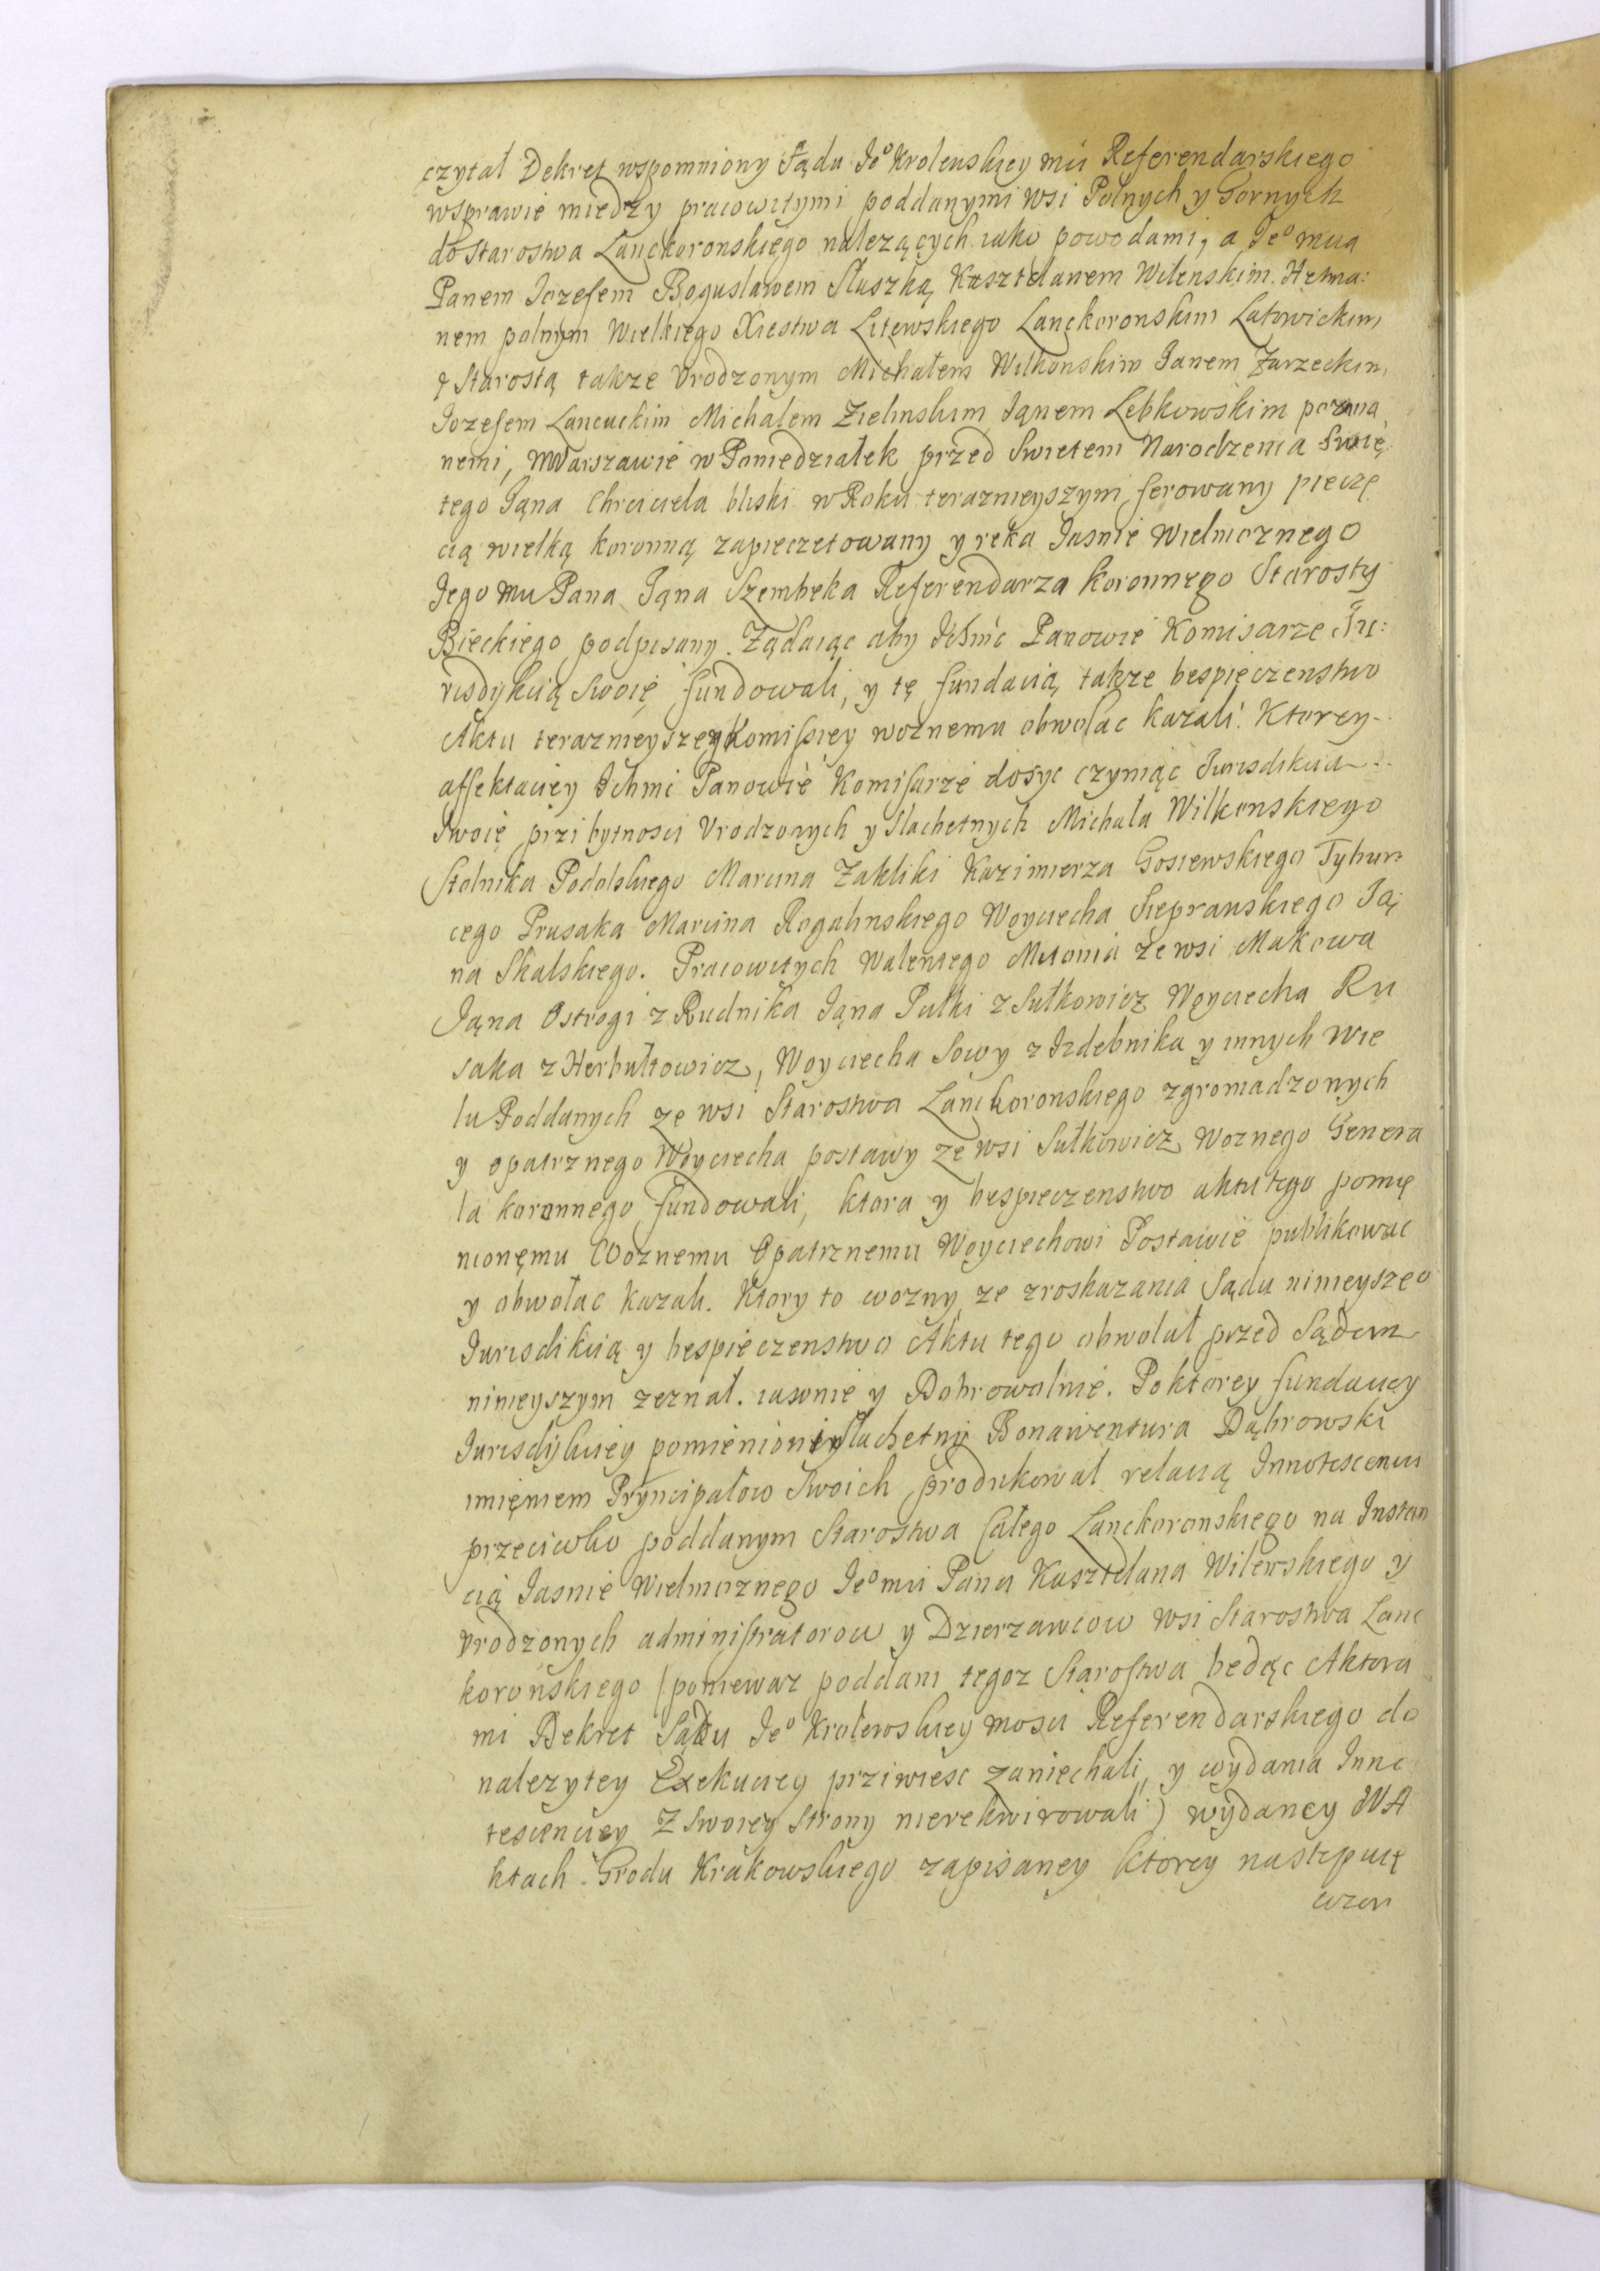 czytał Dekret wspomniony Sądu Je° Krolewskiey mći Referendarskiego
wsprawie między pracowitymi poddanymi wsi Polnych y Gornych
do Starostwa Lanckoronskięgo nalezących iako powodami, a Je° mcią
Panem Iozefem Bogusławem Słuszką, Kasztelanem Wilenskim. Hetma:
nem polnym Wielkiego Xiestwa Litewskiego Lanckoronskim Latowickim
y Starostą takze Vrodzonym Michałem Wilkonskim Janem Zarzeckim,
Iozefem Lancuckim Michałem Zielinskim Iąnem Lebkowskim pozwa
nemi, wWarszawie w Poniedziałek przed Swietem Narodzenia Swię
tego Iąna Chrciciela bliski w Roku teraznieyszym ferowany pieczę
cią wielką koronną zapieczetowany y ręka Jasnie Wielmoznego
Jego Mci Pana Iąna Szembeka Referendarza koronnego Starosty
Bieckiego podpisany. Ządaiąc aby Ichmć Panowie Komisarze Iu:
risdykcią Swoię fundowali, y tę fundacią, takze bespięczenstwo
Aktu terazniejszey Komissiey woznemu obwołac kazali. Ktorey
affektaciey Ichmć Panowie Komisarze dosyc czyniąc Iurisdikcią
Swoię przi bytnosci Vrodzonych y Slachetnych Michała Wilkonskiego
Stolnika Podolskiego Marcina Zakliki Kazimierza Gosiewskiego Tybur
cego Prusaka Marcina Rogalinskiego Woyciecha Sieprawskiego Ią
na Skalskiego. Pracowitych Walentego Mitonia ze wsi Makowa
Iąna Ostrogi z Rudnika Iąna Pułki z Sułkowicz Woyciecha Ru
saka z Herbułtowicz, Woyciecha Sowy z Izdebnika y innych wie
lu Poddanych ze wsi Starostwa Lanckoronskiego zgromadzonych
y opatrznego Woyciecha postawy ze wsi Sułkowicz Woznego Genera
ła koronnego fundowali, ktora y bespieczenstwo aktu tego pomię
nionęmu Woznemu Opatrznemu Woyciechowi Postawie publikowac
y obwołac kazali. Ktory to wozny ze zroskazania Sądu ninieyszeo
Iurisdikcią y bespieczenstwo Aktu tego obwołał przed Sądem
ninieyszym zeznał. iawnie y Dobrowolnie. Po ktorey fundaciey
Iurisdykciey pomieniony Slachetny Bonawentura Dąbrowski
imięniem Pryncipałow Swoich produkował relacią Innotescencii
przeciwko poddanym Starostwa Całego Lanckoronskiego na Instan
cią Jasnie Wielmoznego Je° mci Pana Kasztelana Wilenskiego y
Vrodzonych administratorow y Dzierzawcow wsi Starostwa Lanc
korońskiego (poniewaz poddani tegoz Starostwa będąc Aktora
mi Dekret Sądu Je° Krolewskiey mosci Referendarskiego do
nalezytey Exekuciey prziwiesc zaniechali, y wydania Inno
tescenciey z swoiey strony nierekwirowali) wydaney WA
ktach Grodu Krakowskiego zapisaney ktorey nastepuię
wzor